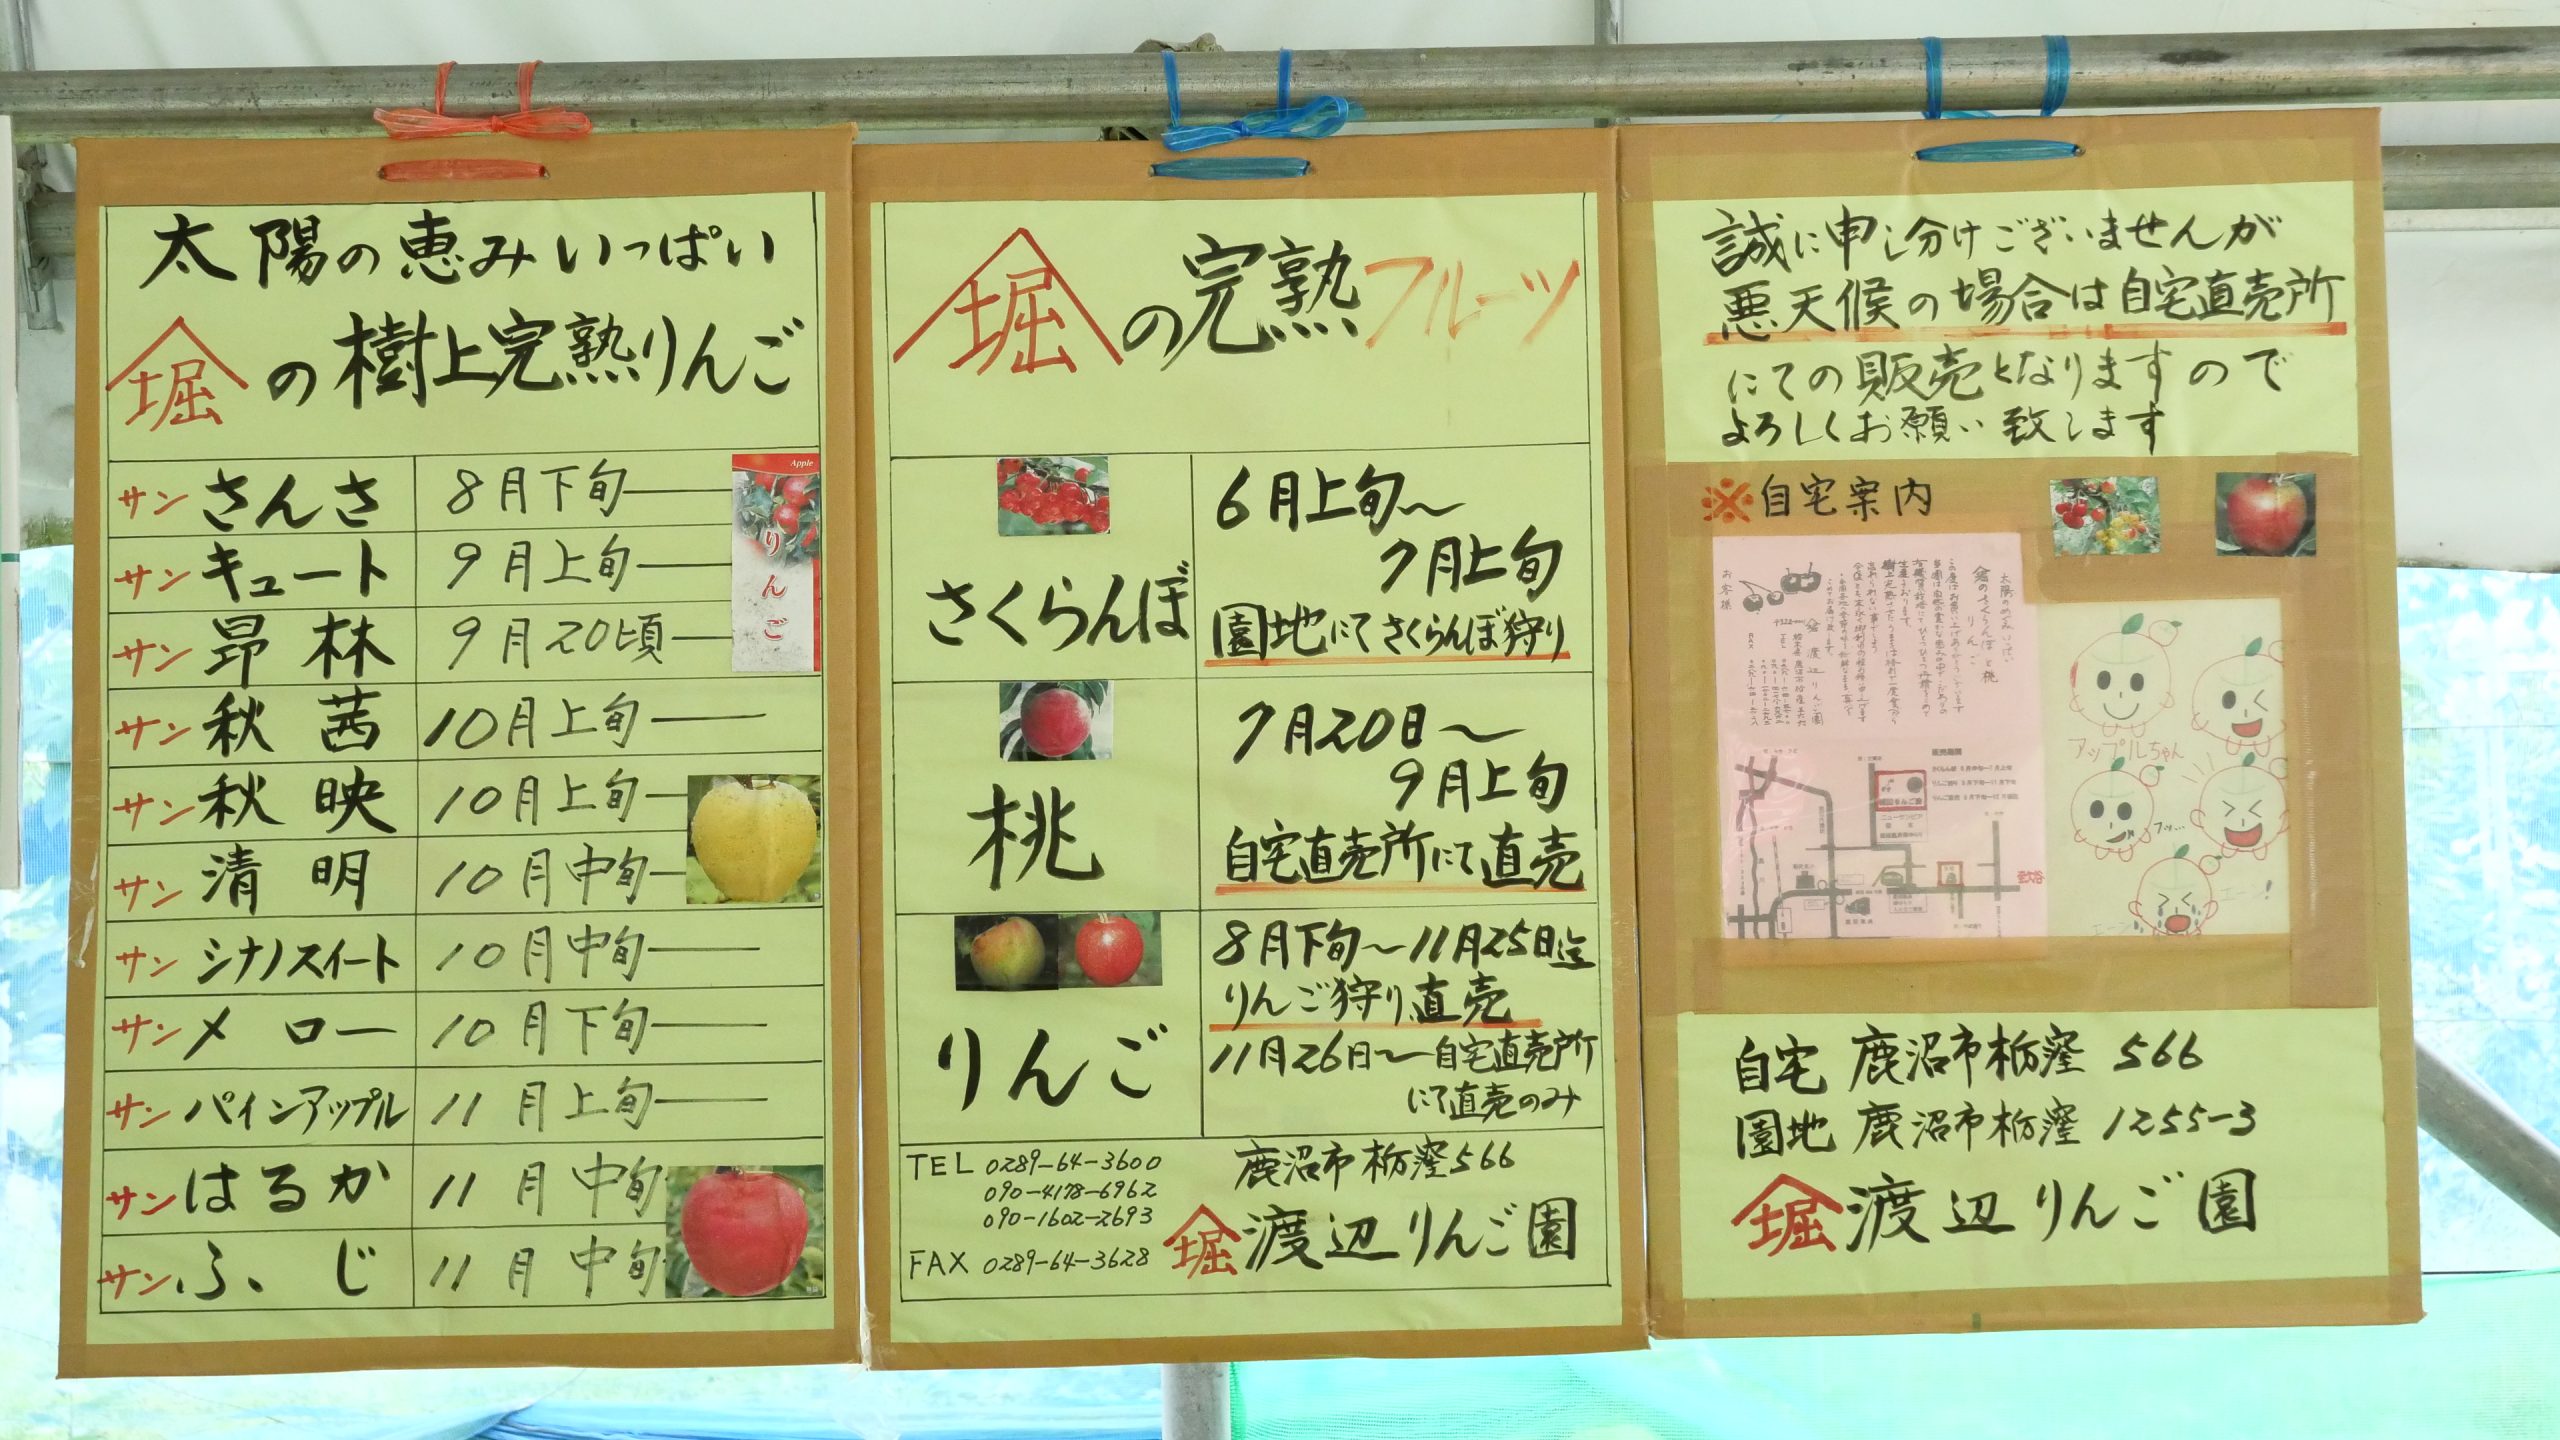 太陽の恵みいっぱい
堀の樹上完熟りんご
サンさんさ 8月下旬
サンキュート 9月上旬
サン昴林 9月20頃
サン秋茜 10月上旬
サン秋映 10月上旬
サン清明 10月中旬
サンシナノスイート 10月中旬
サンメロー 10月下旬
サンパインアップル 11月上旬
サンはるか 11月中旬
サンふじ 11月中旬
Apple
りんご
堀の完熟フルーツ
さくらんぼ
6月上旬〜
7月上旬
園地にてさくらんぼ狩り
桃
7月20日〜
9月上旬
自宅直売所にて直売
りんご
8月下旬〜11月25日迄
りんご狩り、直売
11月26日〜自宅直売所
にて直売のみ
TEL 0289-64-3600
090-4178-6962
090-1602-2693
FAX 0289-64-3628
鹿沼市栃窪566
堀 渡辺りんご園
誠に申し分けございませんが
悪天候の場合は自宅直売所
にての販売となりますので
よろしくお願い致します
※自宅案内
太陽のめぐみいっぱい
お客様
渡辺りんご園
販売期間
アップルちゃん
フッ…
エーン!
自宅 鹿沼市栃窪 566
園地 鹿沼市栃窪 1255-3
堀 渡辺りんご園